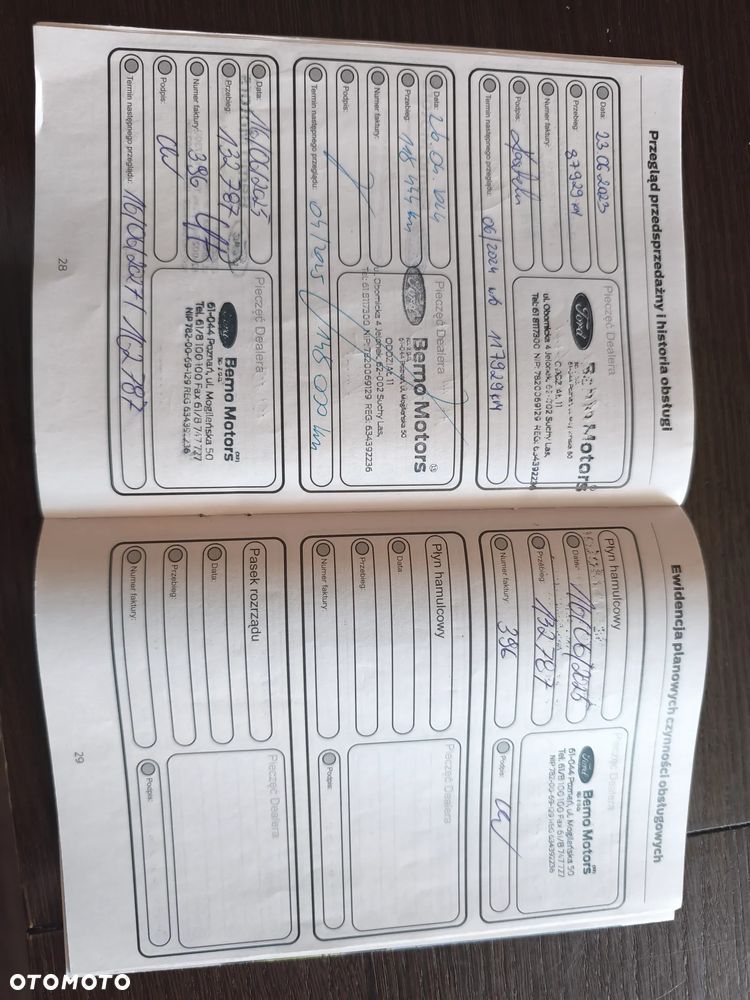 Przegląd przedsprzedażny i historia obsługi
Data: 23 06 2023
Przebieg: 87929 km
Numer faktury:
Podpis:
Termin następnego przeglądu: 06/2024 lub 117929 km
Pieczęć Dealera
Ford
Bemo Motors
ul. Obornicka 4 Jelonek, 62-002 Suchy Las,
Tel: 61 8117300 NIP: 7820069129 REG: 634392236
Data: 26.04.2024
Przebieg: 118 444 km
Numer faktury:
Podpis:
Termin następnego przeglądu: 04/2025 / 148 000 km
Pieczęć Dealera
Ford
Bemo Motors
sp. z o.o.
61-044 Poznań, ul. Mogileńska 50
ODDZIAŁ 11
ul. Obornicka 4 Jelonek, 62-002 Suchy Las,
Tel: 61 8117300 NIP: 7820069129 REG: 634392236
Data: 16/06/2025
Przebieg: 132 787
Numer faktury: 396
Podpis:
Termin następnego przeglądu: 16/06/2027 / 162 787
Pieczęć Dealera
Ford
Bemo Motors
sp. z o.o.
61-044 Poznań, ul. Mogileńska 50
Tel. 61/8 100 100 Fax 61/8 747 727
NIP 782-00-69-129 REG 634392236
28
Ewidencja planowych czynności obsługowych
Płyn hamulcowy
Data: 16/06/2025
Przebieg: 132 787
Numer faktury: 396
Pieczęć Dealera
Ford
Bemo Motors
sp. z o.o.
61-044 Poznań, ul. Mogileńska 50
Tel. 61/8 100 100 Fax 61/8 747 727
NIP 782-00-69-129 REG 634392236
Podpis:
Płyn hamulcowy
Data:
Przebieg:
Numer faktury:
Pieczęć Dealera
Podpis:
Pasek rozrządu
Data:
Przebieg:
Numer faktury:
Pieczęć Dealera
Podpis:
29
OTOMOTO